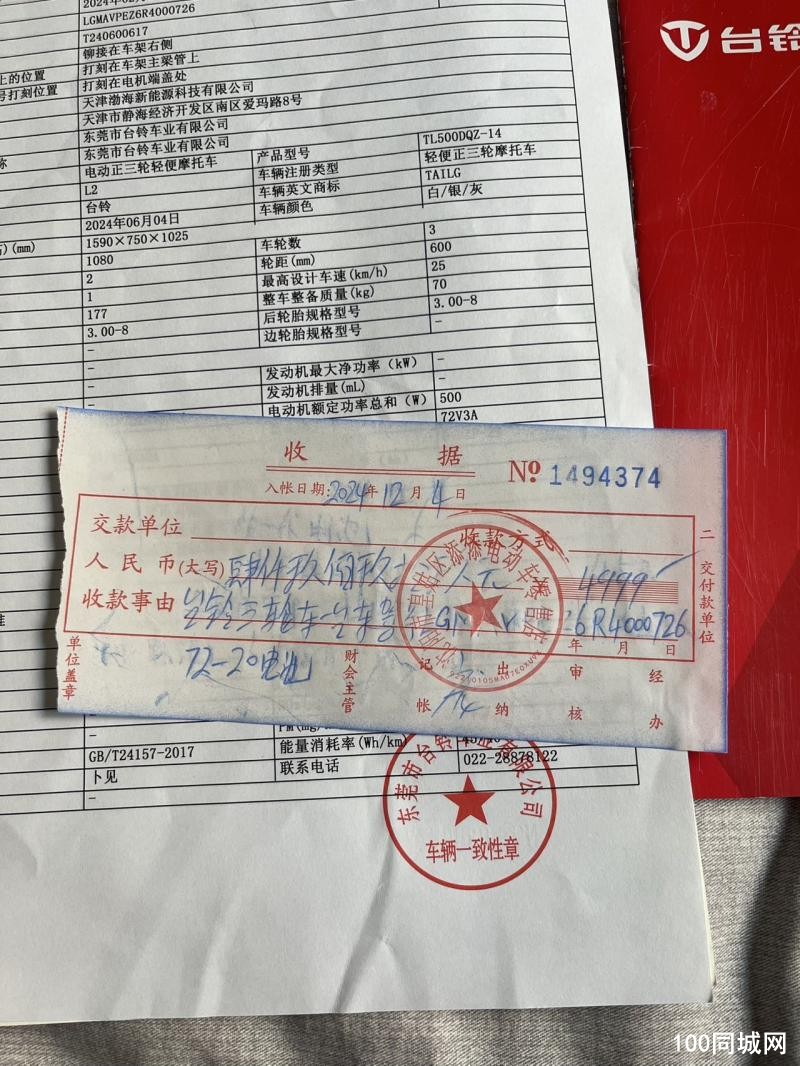 台铃
LGMAVPEZ6R4000726
T240600617
铆接在车架右侧
上的位置 打刻在车架主梁管上
号打刻位置 打刻在电机端盖处
天津渤海新能源科技有限公司
天津市静海经济开发区南区爱玛路8号
东莞市台铃车业有限公司
东莞市台铃车业有限公司
称 电动正三轮轻便摩托车 产品型号 TL500DQZ-14
L2 车辆注册类型 轻便正三轮摩托车
台铃 车辆英文商标 TAILG
2024年06月04日 车辆颜色 白/银/灰
(mm) 1590×750×1025 车轮数 3
1080 轮距(mm) 600
2 最高设计车速(km/h) 25
1 整车整备质量(kg) 70
177 后轮胎规格型号 3.00-8
3.00-8 边轮胎规格型号 -
-
- 发动机最大净功率（kW） -
- 发动机排量(mL) -
- 电动机额定功率总和（W） 500
72V3A
收 据
№ 1494374
入帐日期:2024年12月4日
交款单位 收款方式
人民币(大写) 肆仟玖佰玖 元 4999
收款事由 台铃三轮车一台车 6R4000726
年 月 日
72-20电池
单位盖章 财会主管 记帐 出纳 审核 经办
二交付款单位
能量消耗率(Wh/km)
GB/T24157-2017 联系电话 022-28878122
卜见
-
东莞市台铃车业有限公司
车辆一致性章
100同城网